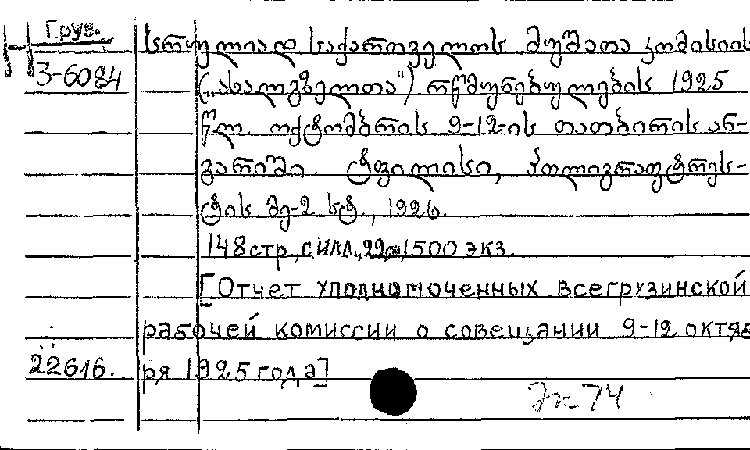 Груз.
3-6084
სრულიად საქართველოს მუშათა კომისიის
(„ახალგზელთა") რწმუნებულების 1925
წლ. ოქტომბრის 9-12-ის თათბირის ან-
გარიში ტფილისი, პოლიგრაფტრეს-
ტის მე-2 სტ., 1926.
148 стр., с илл., 22 см, 1500 экз.
[Отчет уполномоченных всегрузинской
рабочей комиссии о совещании 9-12 октяб
22616. ря 1925 года]
74